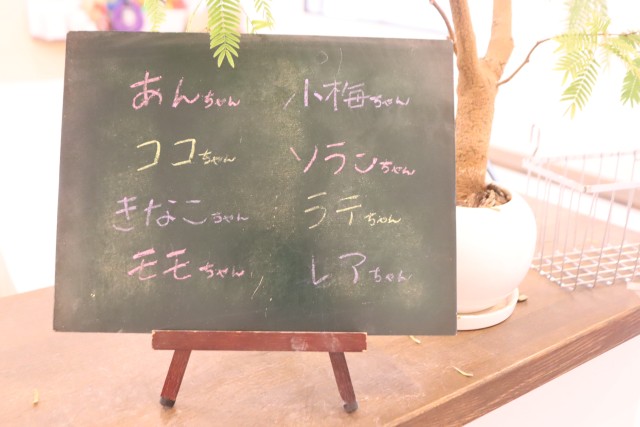 あんちゃん 小梅ちゃん
ココちゃん ソランちゃん
きなこちゃん ラテちゃん
モモちゃん レアちゃん